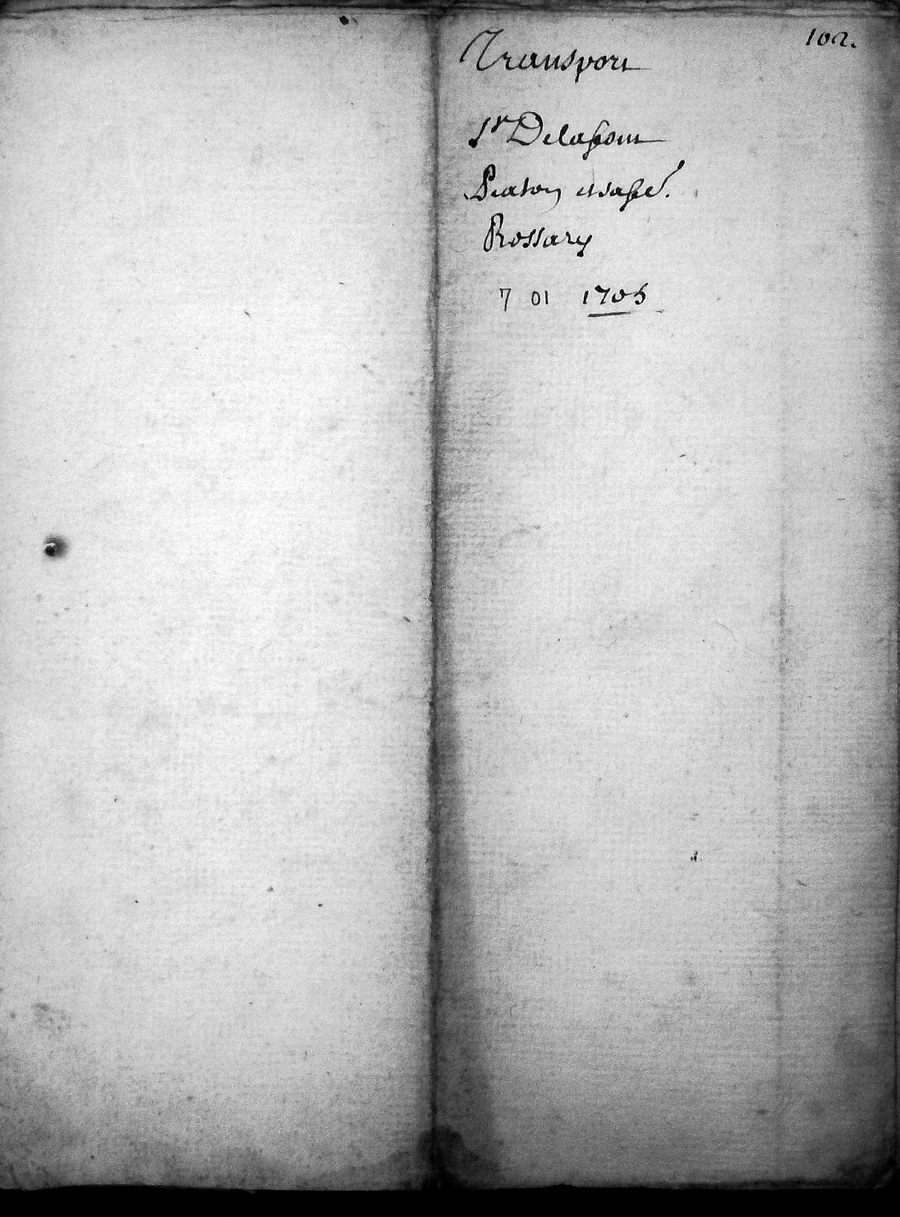 102.
Transport
Sr Delafont
Peaton et safe.
Rossary
7 01 1705